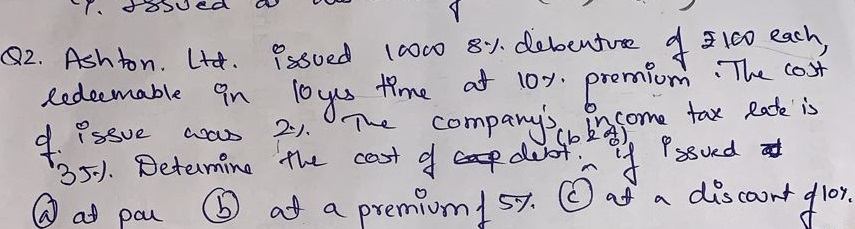 Q2. Ashton. Ltd. issued 10000 8% debenture of ₹100 each,
redeemable in 10 yrs time at 10% premium. The cost
of issue was 2%. The company's income tax rate is
35%. Determine the cost of debt. (b & a) if issued
(a) at par (b) at a premium of 5%. (c) at a discount of 10%.